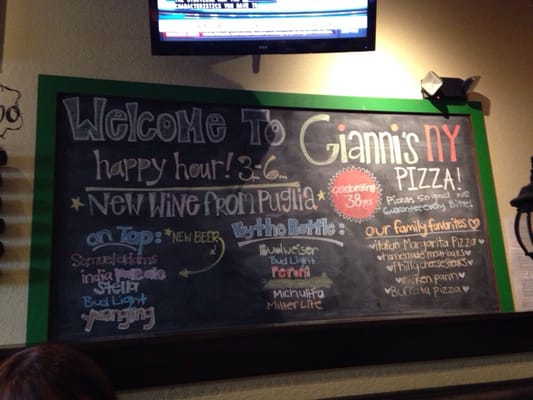 Welcome To Gianni's NY
PIZZA!
happy hour! 3-6
New Wine from Puglia
Celebrating
38 yrs
Pizzas So good We
Guarantee every Bite!
on Tap:
*NEW BEER
Samuel adams
india pale ale
Stella
Bud Light
Yuengling
By the Bottle:
Budweiser
Bud Light
Peroni
Michulita
Miller Lite
our family favorites
Italian Margarita Pizza
homemade meatballs
Philly cheese steaks
Burrata pizza